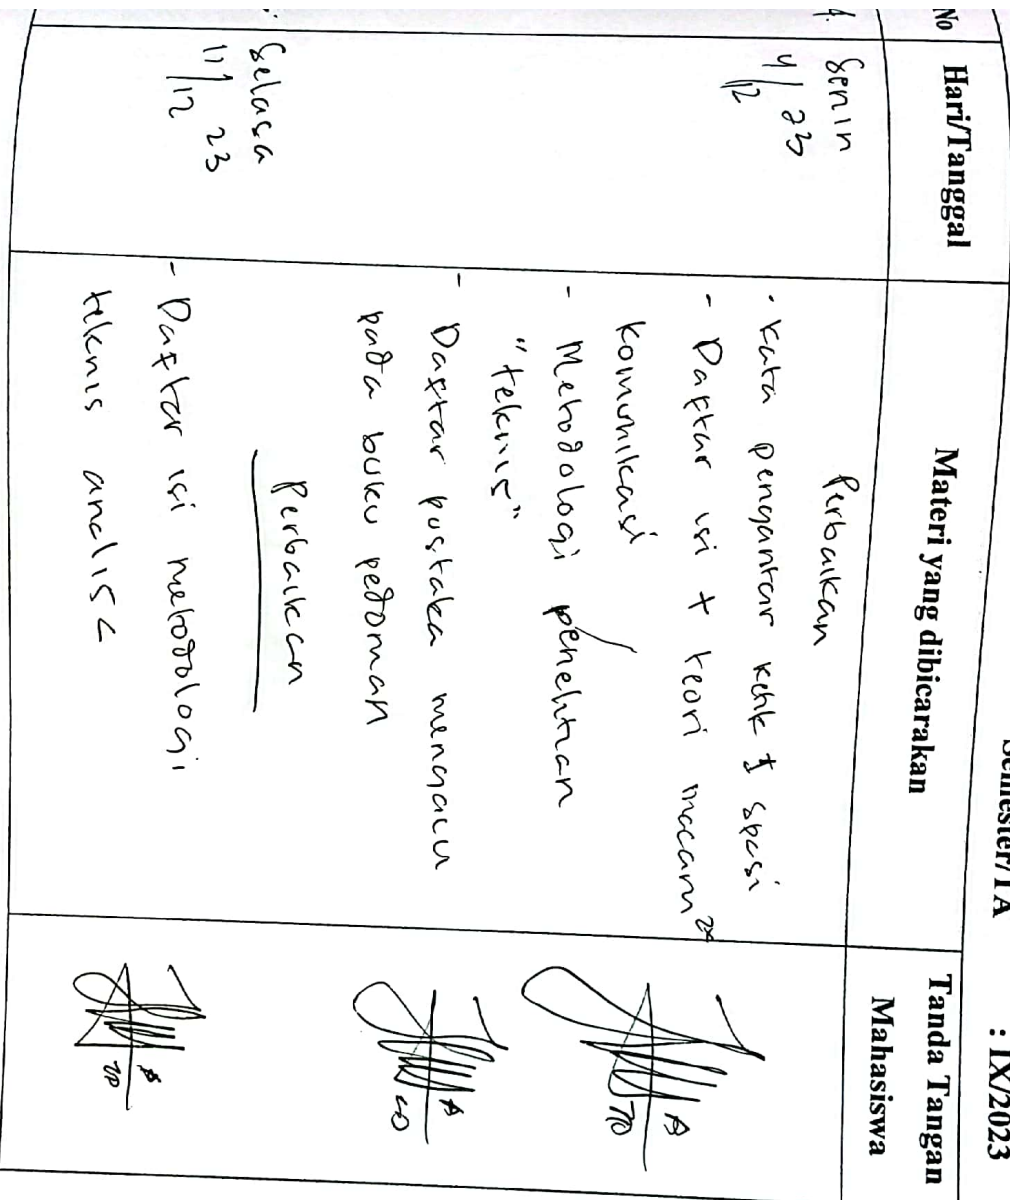 Semester/TA : IX/2023
No Hari/Tanggal Materi yang dibicarakan Tanda Tangan Mahasiswa
Senin
4/12 23
Perbaikan
- Kata pengantar ketik 1 spasi
- Daftar isi + teori macam2x
komunikasi
- Metodologi penelitian
"teknis"
- Daftar pustaka mengacu
pada buku pedoman
Selasa
11/12 23
Perbaikan
- Daftar isi metodologi
teknis analisa